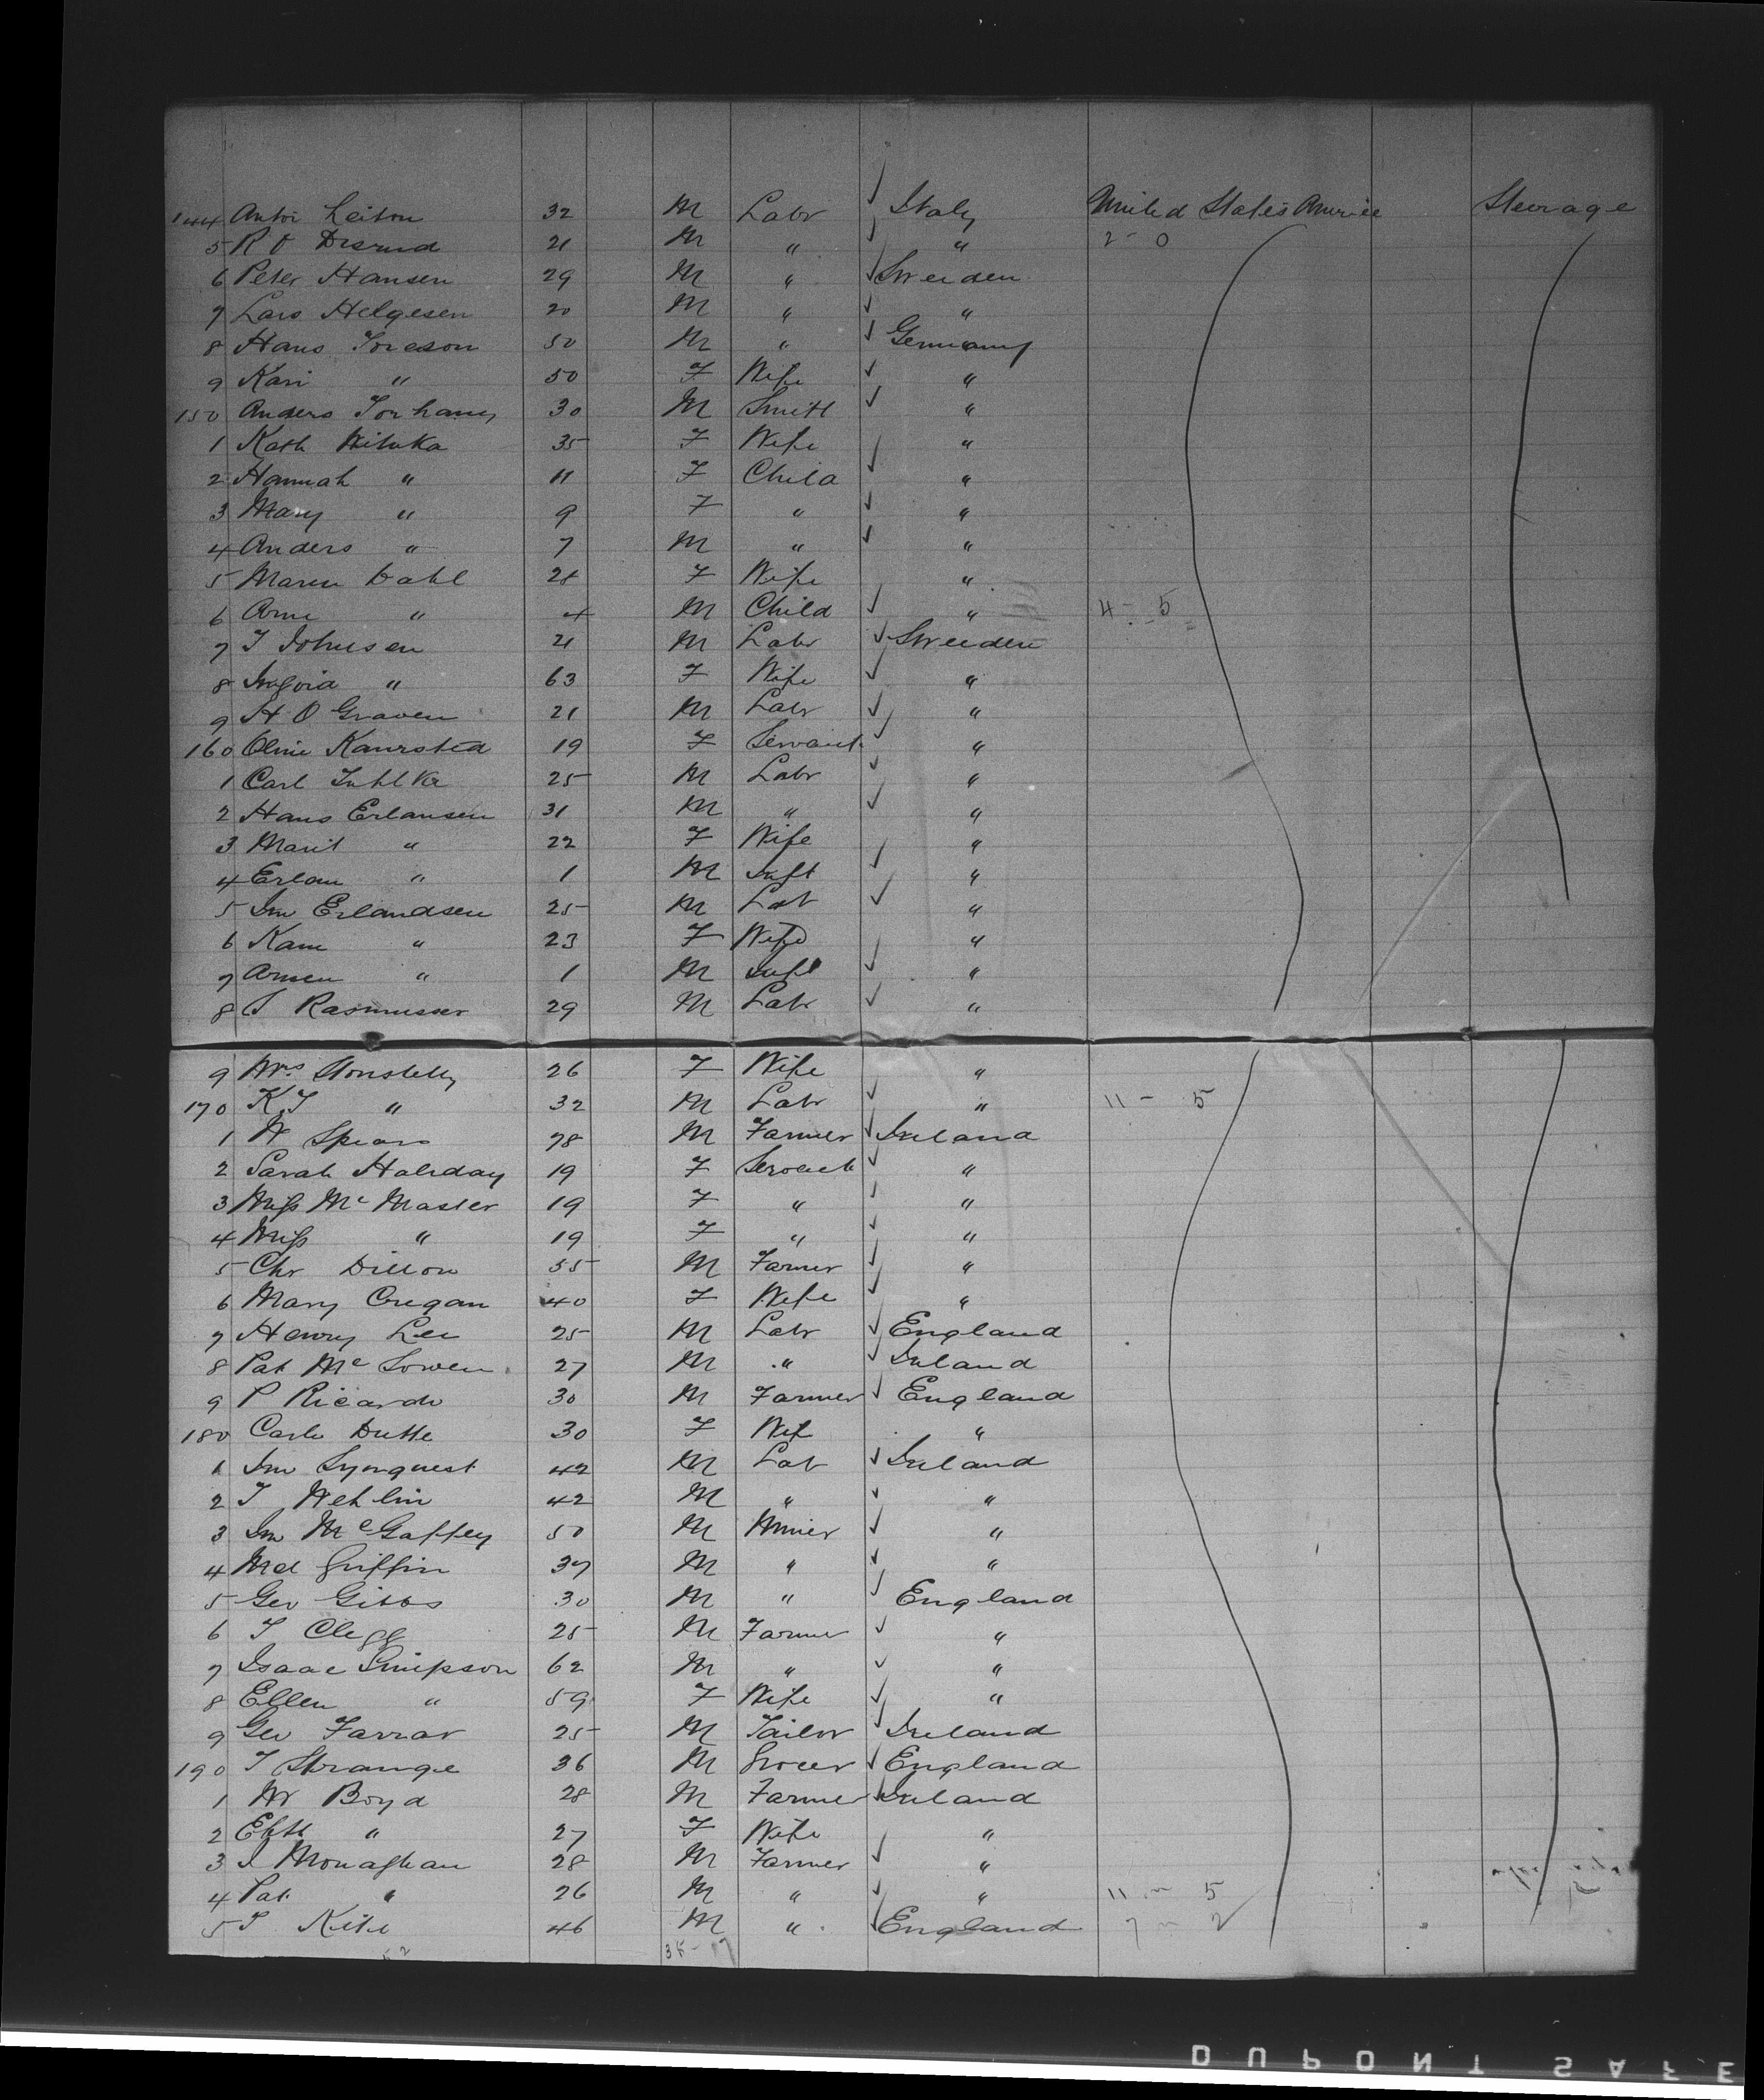 144 Anton Leiton 32 M Labr Italy United States America Steerage
5 R O Disrud 21 M " " 2 - 0
6 Peter Hansen 29 M " Sweeden
7 Lars Helgesen 20 M " "
8 Hans Toreson 50 M " Germany
9 Kari " 50 F Wife "
150 Anders Torhaug 30 M Smith "
1 Kath Wituka 35 F Wife "
2 Hannah " 11 F Child "
3 Mary " 9 F " "
4 Anders " 7 M " "
5 Maren Dahl 28 F Wife "
6 Arne " 4 M Child " 4 - 5
7 T Johnsen 21 M Labr Sweeden
8 " 63 F Wife "
9 H O Graven 21 M Labr "
160 Oline 19 F Servant "
1 Carl 25 M Labr "
2 Hans Erlansen 31 M " "
3 Marit " 22 F Wife "
4 Erlan " 1 M Inft "
5 Jno Erlandsen 25 M Lab "
6 Kani " 23 F Wife "
7 " 1 M Inft "
8 T Rasmusser 29 M Labr "
9 Mrs 26 F Wife "
170 K T " 32 M Labr " 11 - 5
1 W Spears 78 M Farmer Ireland
2 Sarah Haliday 19 F Servant "
3 Miss Mc Master 19 F " "
4 Miss " 19 F " "
5 Chr Dillon 55 M Farmer "
6 Mary Cregan 40 F Wife "
7 Henry Lee 25 M Labr England
8 Pat Mc Gowen 27 M " Ireland
9 P Ricardo 30 M Farmer England
180 Carle Dutte 30 F Wife "
1 Jno Lynquest 42 M Lab Ireland
2 T Wehlin 42 M " "
3 Jno McGaffey 50 M Miner "
4 Md Griffin 37 M " "
5 Geo Gibbs 30 M " England
6 T Clegg 25 M Farmer "
7 Isaac Simpson 62 M " "
8 Ellen " 59 F Wife "
9 Geo Farrar 25 M Tailor Ireland
190 T Strange 36 M Grocer England
1 W Boyd 28 M Farmer Ireland
2 Elzth " 27 F Wife "
3 J Monaghan 28 M Farmer "
4 Pat " 26 M " " 11 - 5
5 T Kite 46 M " England 7 - 2
35 - 17
DUPONT SAFE